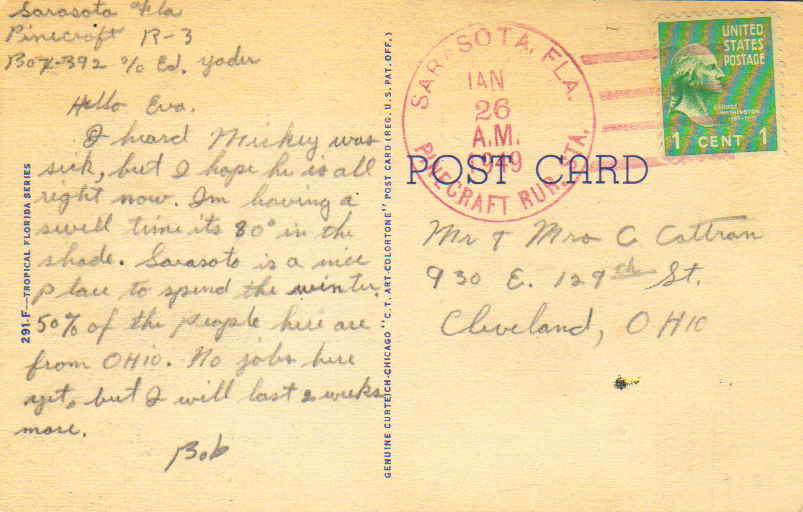 Sarasota Fla
Pinecraft R-3
Box-392 % Ed. Yoder
Hello Eva.
I heard Mickey was
sick, but I hope he is all
right now. Im having a
swell time its 80° in the
shade. Sarasota is a nice
place to spend the winter.
50% of the people here are
from OHIO. No jobs here
yet, but I will last 2 weeks
more.
Bob
291-F—TROPICAL FLORIDA SERIES
GENUINE CURTEICH-CHICAGO "C.T. ART-COLORTONE" POST CARD (REG. U.S. PAT. OFF.)
SARASOTA, FLA.
JAN
26
A.M.
1949
PINECRAFT RUR. STA.
UNITED
STATES
POSTAGE
GEORGE
WASHINGTON
1 CENT 1
POST CARD
Mr & Mrs C Cattran
930 E. 129th St.
Cleveland, OHIO